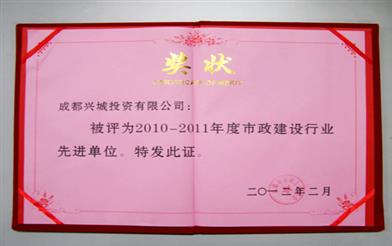 奖状
CERTIFICATE OF MERIT
成都兴城投资有限公司：
被评为2010-2011年度市政建设行业
先进单位。特发此证。
二〇一二年二月